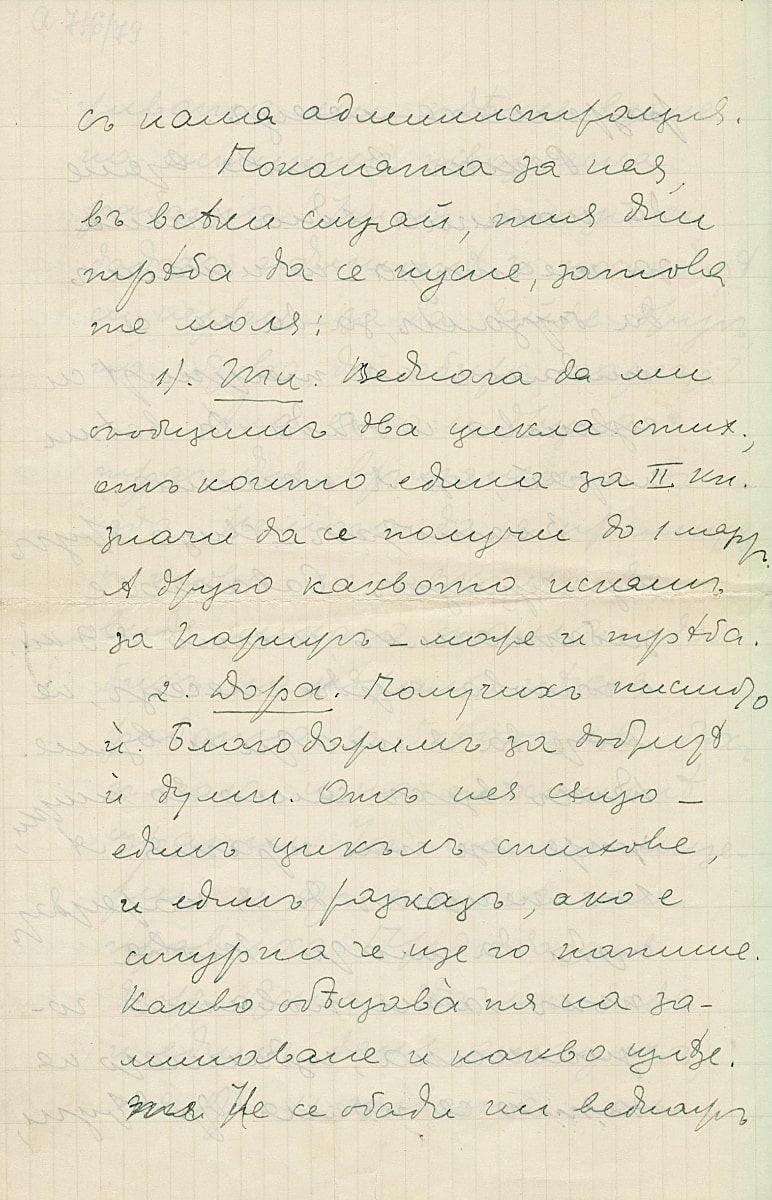 а 716/79
съ наша администрация.
Поканата за нея,
въ всѣки случай, тия дни
трѣба да се пусне, затова
те моля:
1). Ти. Веднага да ми
съобщишъ два цикла стих.,
отъ които едина за II кн.
значи да се получи до 1 мартъ.
А друго каквото искашъ
за Парижъ – може и трѣба.
2. Дора. Получихъ писмото
ѝ. Благодаримъ за добритѣ
ѝ думи. Отъ нея сѫщо –
единъ цикълъ стихове,
и единъ разказъ, ако е
сигурна че ще го напише.
Какво обѣщава тя на за-
минаване и какво
Не се обади ни веднажъ